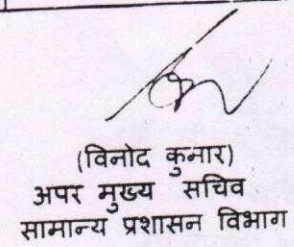 (विनोद कुमार)
अपर मुख्य सचिव
सामान्य प्रशासन विभाग